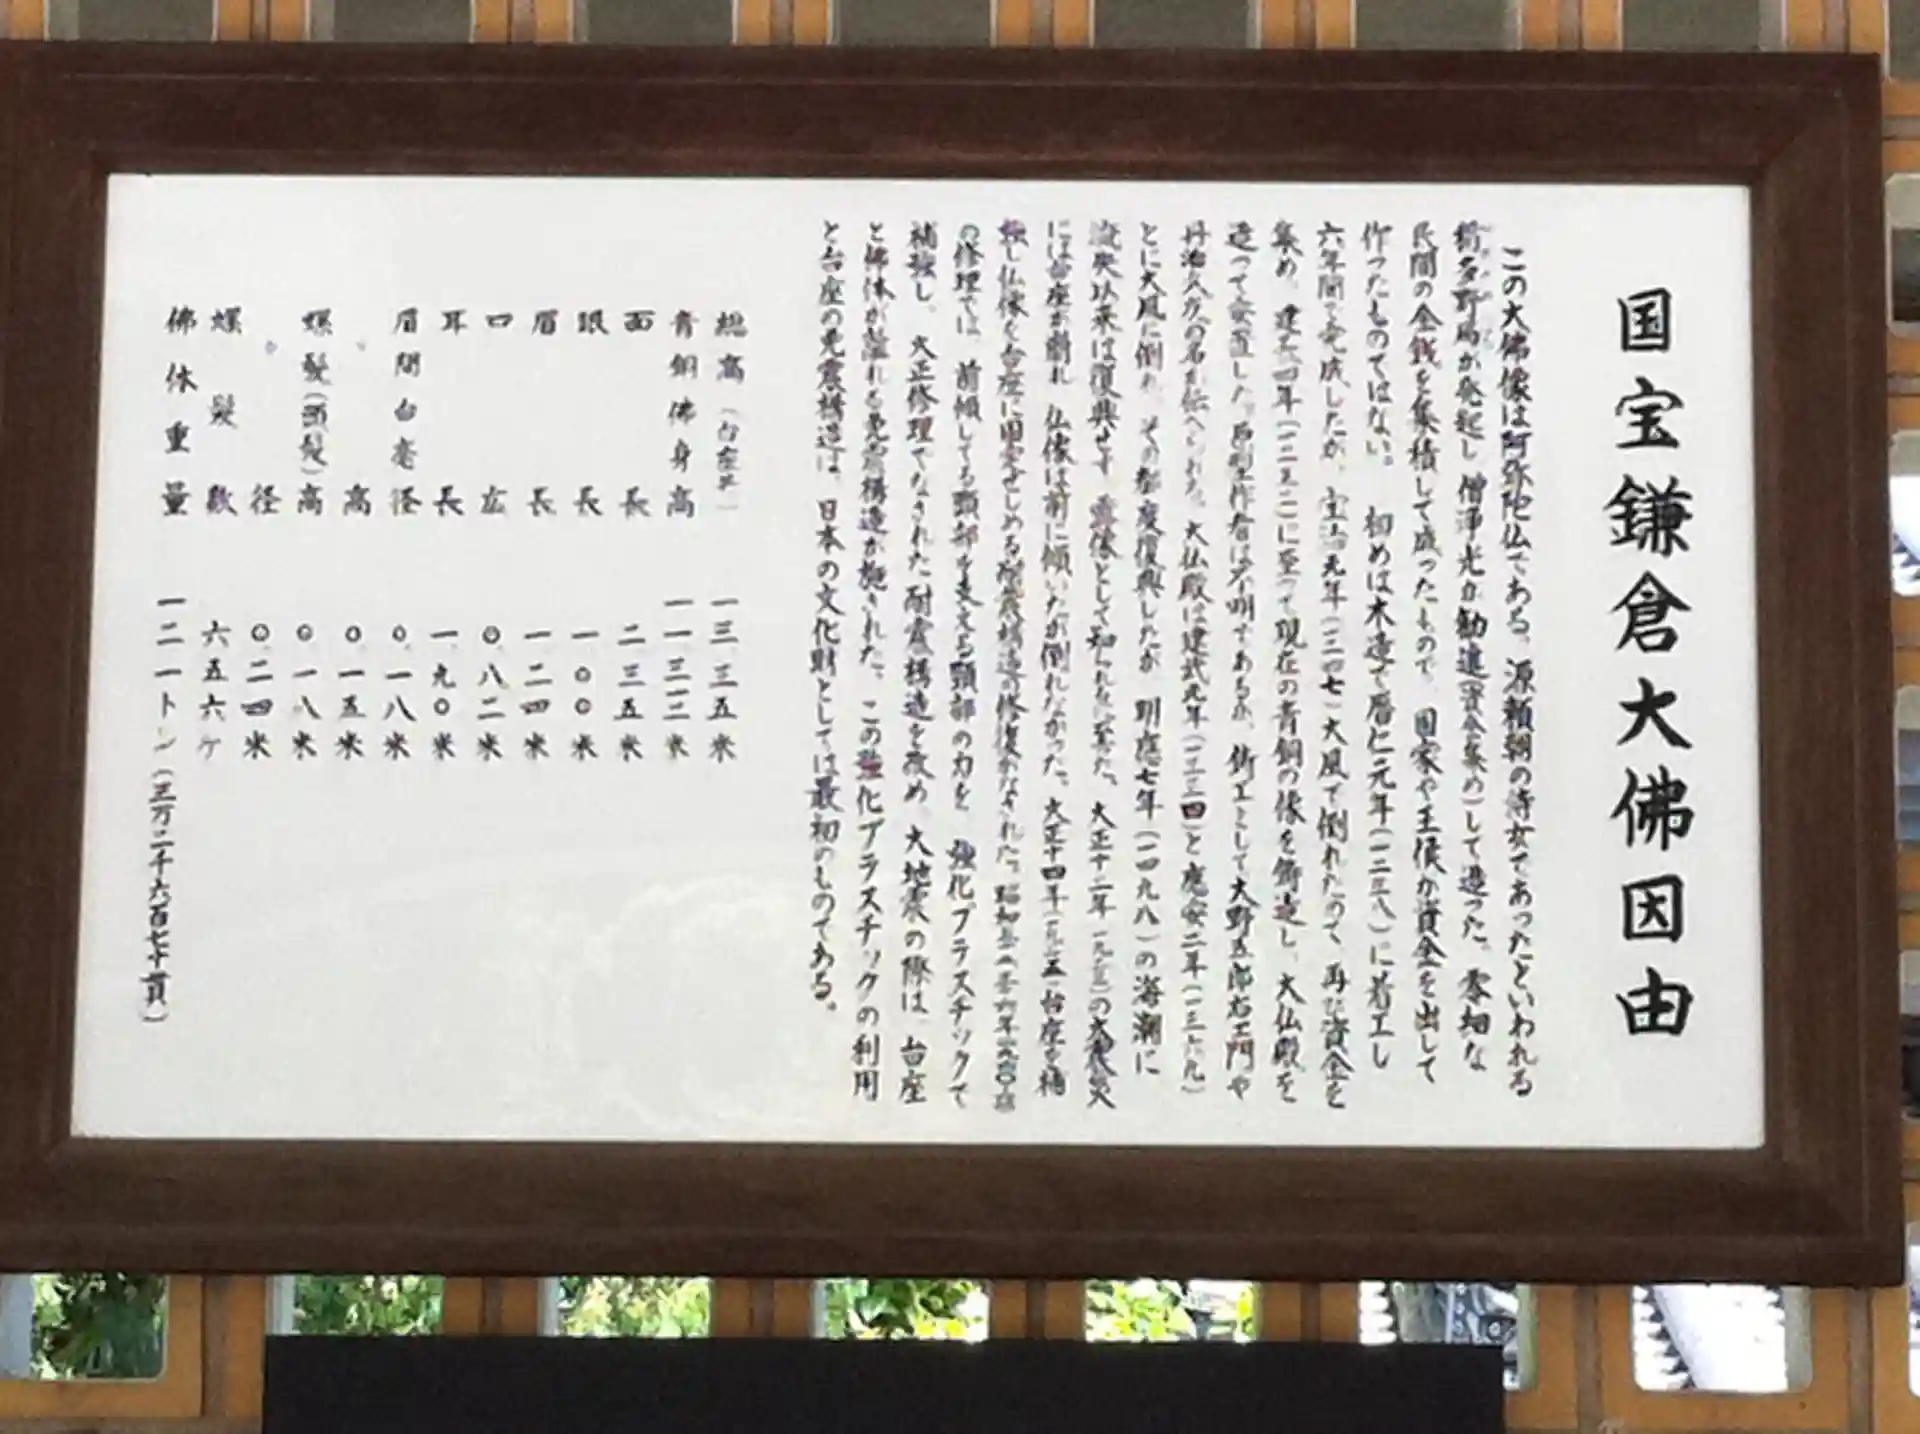 国宝鎌倉大佛因由
この大佛像は阿弥陀仏である。源頼朝の侍女であったといわれる
稲多野局が発起し、僧浄光が勧進(資金集め)して造った。零細な
民間の金銭を集積して成ったもので、国家や王侯が資金を出して
作ったものではない。初めは木造で暦仁元年(一二三八)に着工し
六年間で完成したが、宝治元年(一二四七)大風で倒れたので、再び資金を
集め、建長四年(一二五二)に至って現在の青銅の像を鋳造し、大仏殿を
造って安置した。原型作者は不明であるが、鋳工として大野五郎右エ門や
丹治久友の名が伝へられる。大仏殿は建武元年(一三三四)と応安二年(一三六九)
とに大風に倒れ、その都度復興したが、明應七年(一四九八)の海潮に
流失以来は復興せず、露像として知られ 至った。大正十二年(一九二三)の大震災
には台座が崩れ、仏像は前に傾いたが倒れなかった。大正十四年(一九二五)台座を補
強し仏像を台座に固定せしめる耐震構造の修復がなされた。昭和
の修理では、前傾してる頭部を支える頸部の力を、強化プラスチックで
補強し、大正修理でなされた耐震構造を改め、大地震の際は、台座
と佛体が離れる免震構造が施された。この強化プラスチックの利用
と台座の免震構造は、日本の文化財としては最初のものである。
総高(台座共) 一三.三五米
青銅佛身高 一一.三一二米
面長 二.三五米
眼長 一.〇〇米
眉長 一.二四米
口広 〇.八二米
耳長 一.九〇米
眉間白毫径 〇.一八米
〃高 〇.一五米
螺髪(頭髪)高 〇.一八米
〃径 〇.二四米
螺髪数 六五六ケ
佛体重量 一二一トン(三万二千六百七十貫)